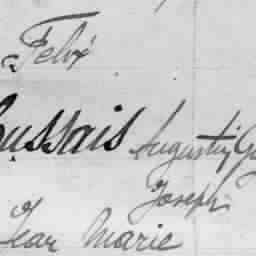 Felix
ussais Augustin
Joseph
Jean Marie